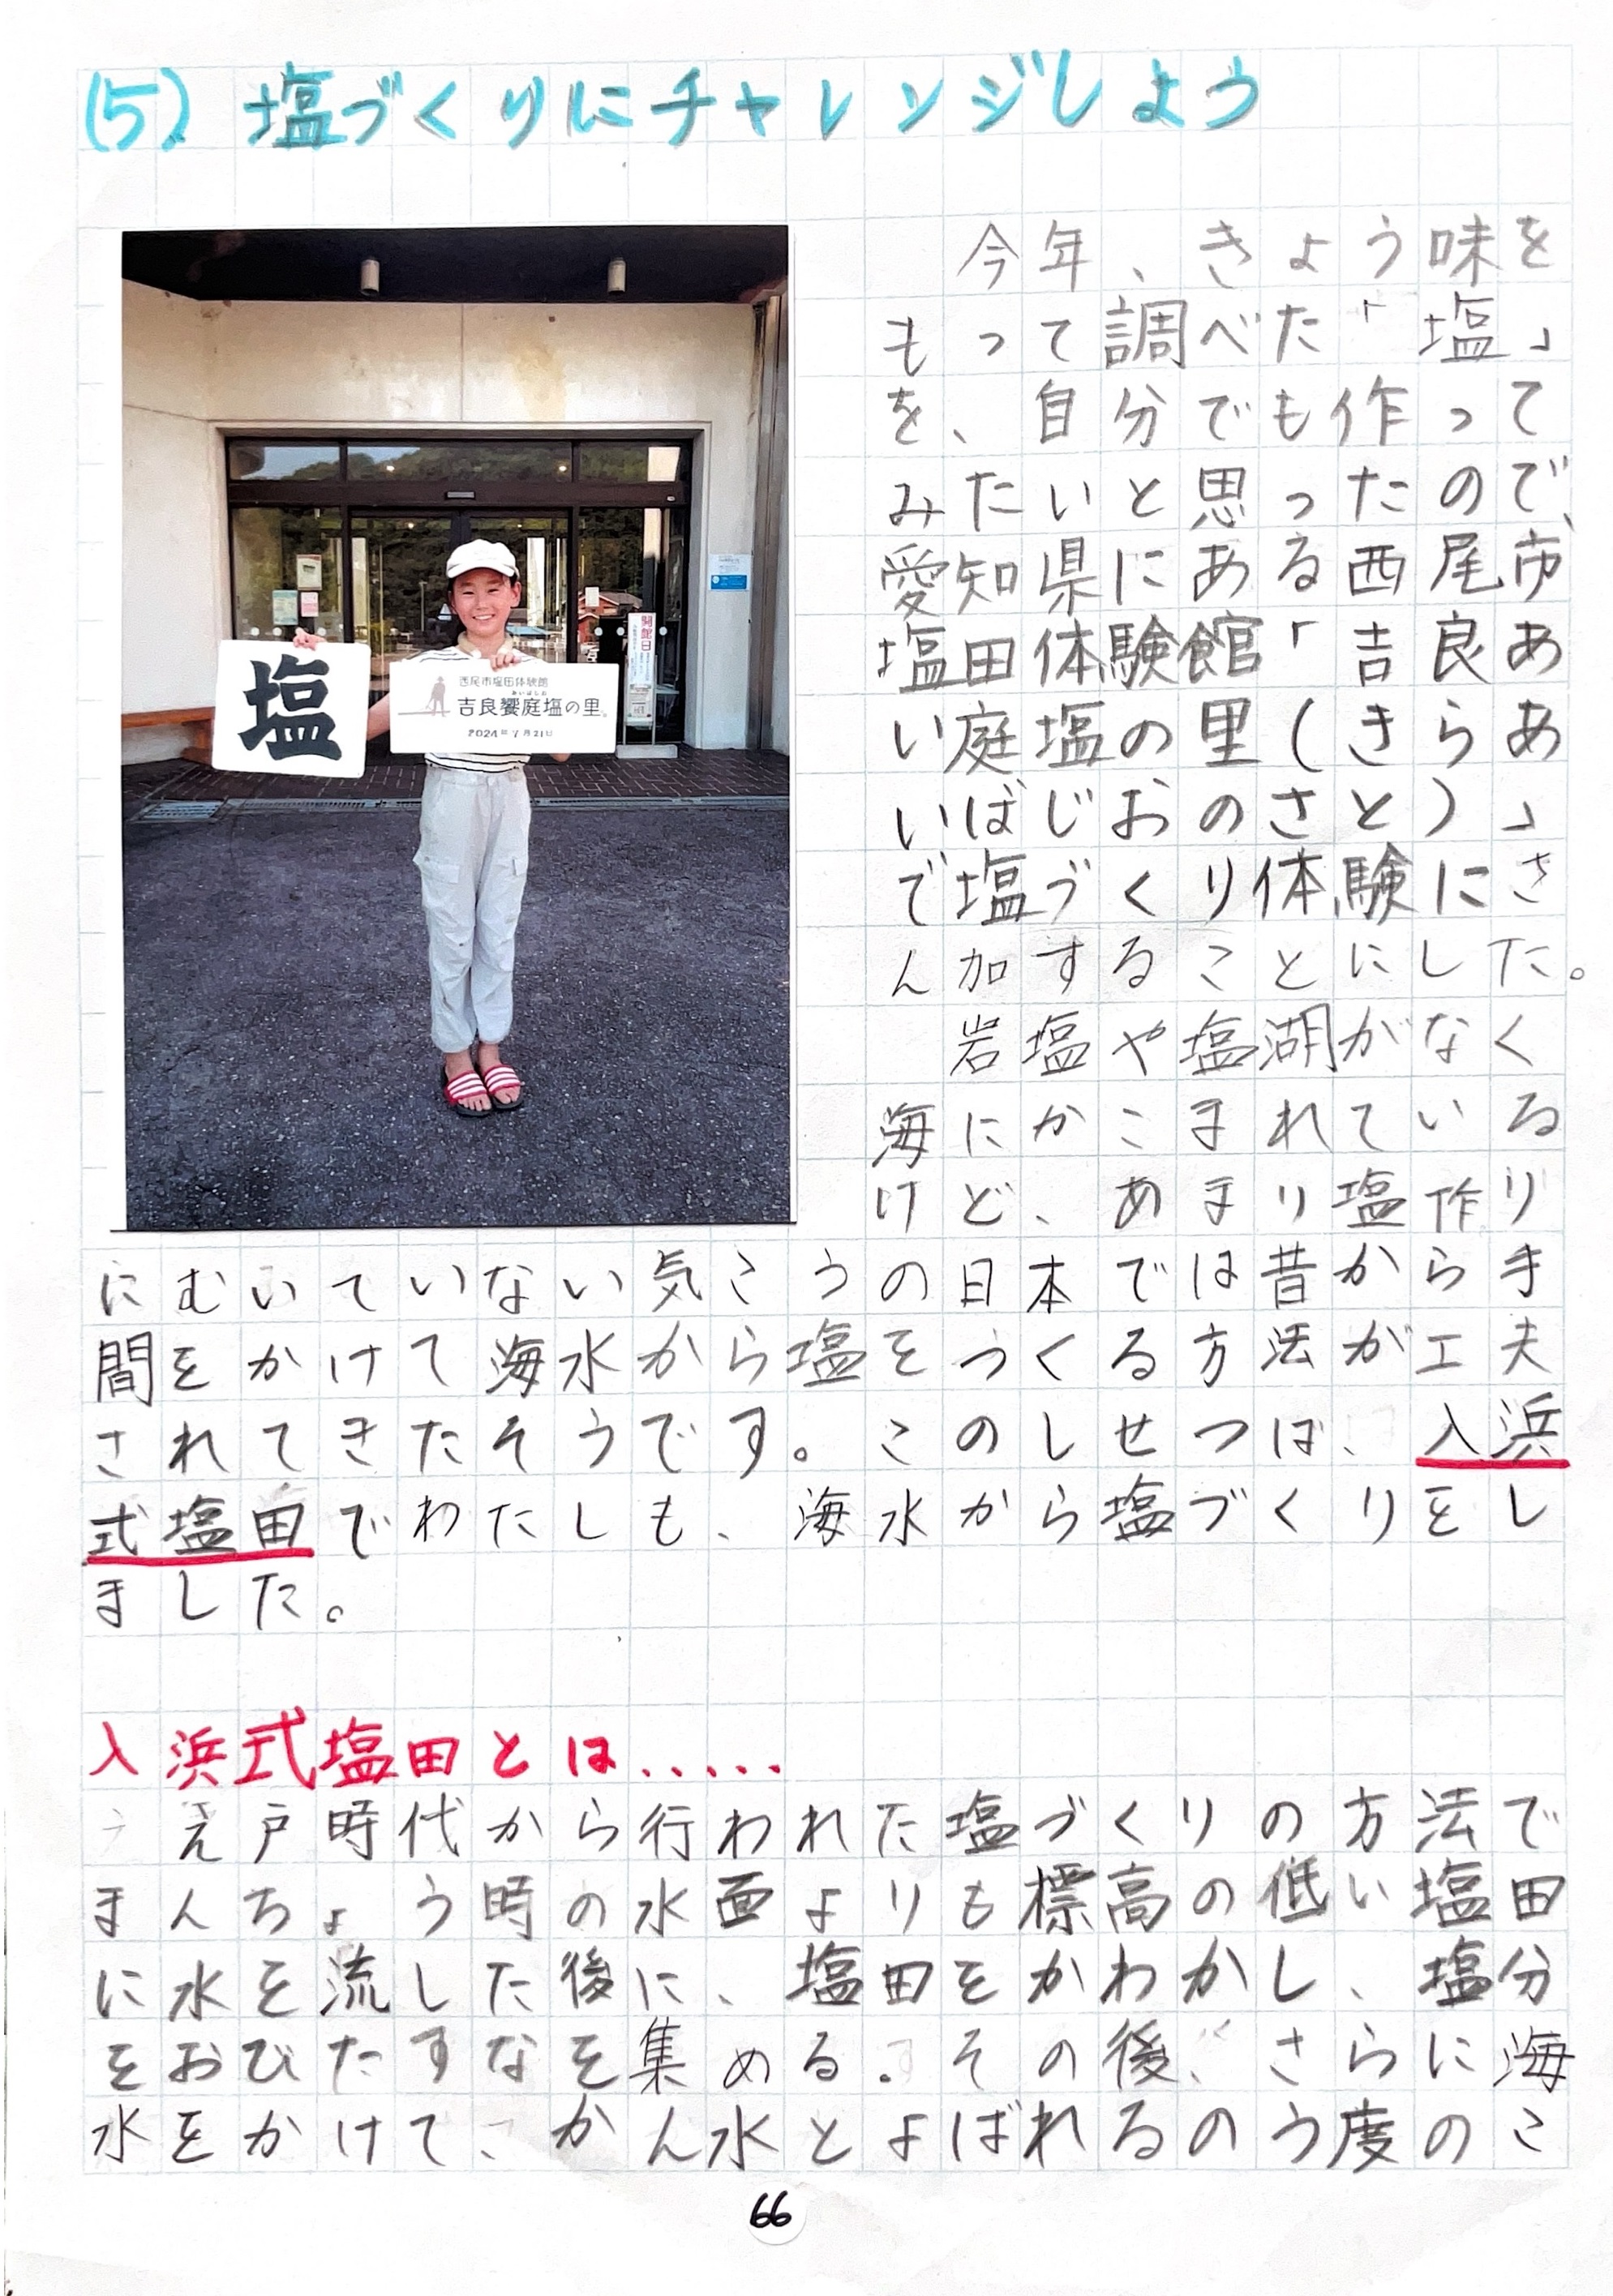 (5) 塩づくりにチャレンジしよう
今年、きょう味を
もって調べた「塩」
を、自分でも作って
みたいと思ったので、
愛知県にある西尾市
塩田体験館「吉良あ
い庭塩の里(きらあ
いばじおのさと)」
で塩づくり体験にさ
ん加することにした。
岩塩や塩湖がなく
海にかこまれている
けど、あまり塩作り
にむいていない気こうの日本では昔から手
間をかけて海水から塩をつくる方法が工夫
されてきたそうです。このしせつは、入浜
式塩田でわたしも、海水から塩づくりをし
ました。
塩
西尾市塩田体験館
あいばしお
吉良饗庭塩の里。
2024年7月21日
開館日
入浜式塩田とは.....
え戸時代から行われた塩づくりの方法で
まんちょう時の水面よりも標高の低い塩田
に水を流した後に、塩田をかわかし、塩分
をおびたすなを集める。その後、さらに海
水をかけて、かん水とよばれるのう度のこ
66